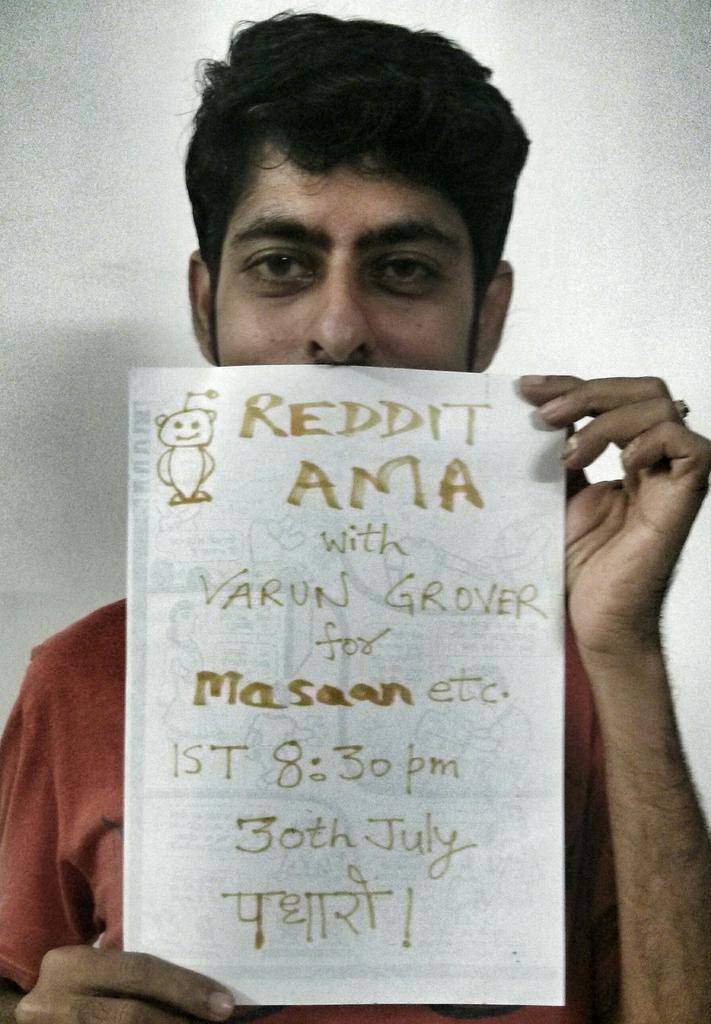 REDDIT
AMA
with
VARUN GROVER
for
Masaan etc.
IST 8:30 pm
30th July
पधारो!